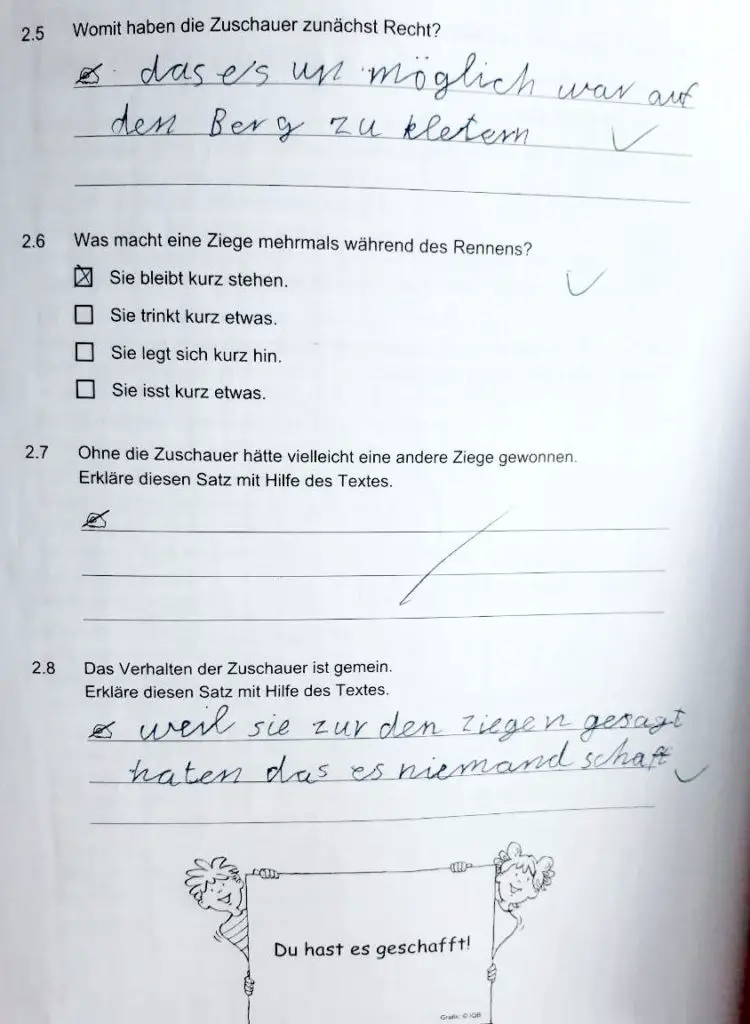 2.5 Womit haben die Zuschauer zunächst Recht?
das es un möglich war auf
den Berg zu kletern
2.6 Was macht eine Ziege mehrmals während des Rennens?
Sie bleibt kurz stehen.
Sie trinkt kurz etwas.
Sie legt sich kurz hin.
Sie isst kurz etwas.
2.7 Ohne die Zuschauer hätte vielleicht eine andere Ziege gewonnen.
Erkläre diesen Satz mit Hilfe des Textes.
2.8 Das Verhalten der Zuschauer ist gemein.
Erkläre diesen Satz mit Hilfe des Textes.
weil sie zur den ziegen gesagt
haten das es niemand schaft
Du hast es geschafft!
Grafik: © IQB